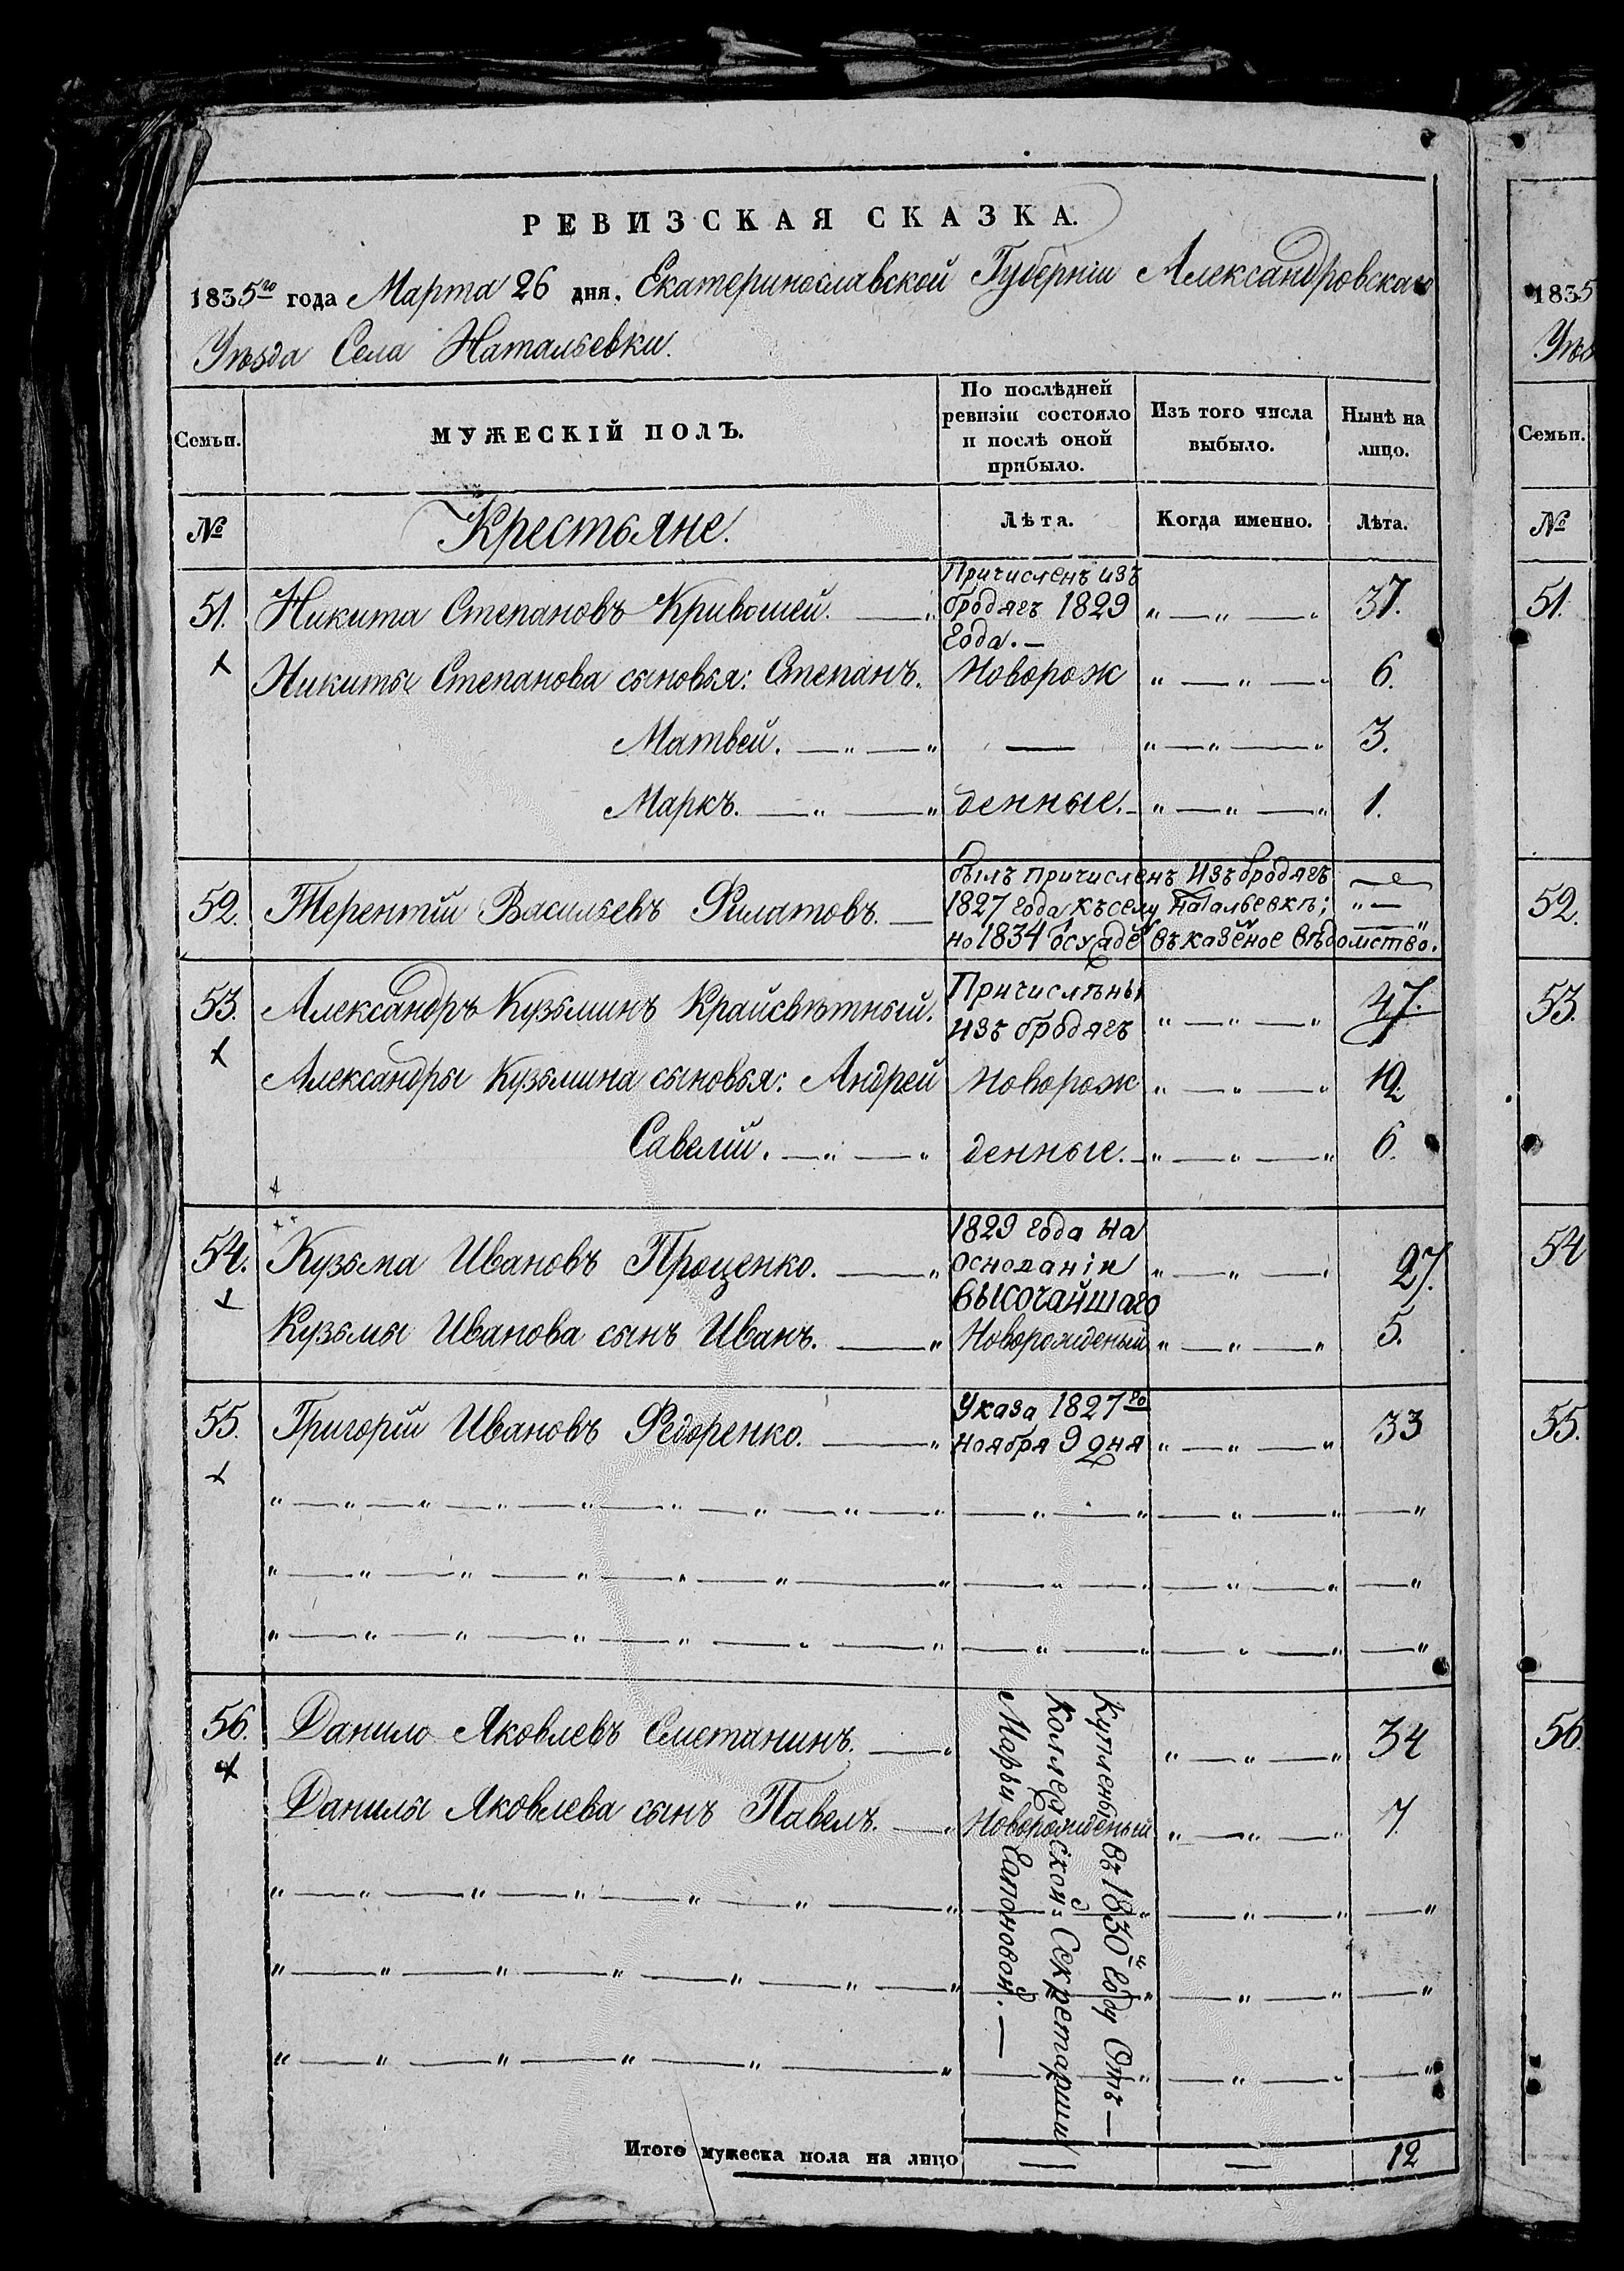 РЕВИЗСКАЯ СКАЗКА.
1835го года Марта 26 дня. Екатеринославской Губерніи Александровскаго
Уѣзда Села Натальевки.
Семьи.
МУЖЕСКІЙ ПОЛЪ.
По послѣдней
ревизіи состояло
и послѣ оной
прибыло.
Изъ того числа
выбыло.
Нынѣ на
лицо.
№
Крестьяне.
Лѣта.
Когда именно.
Лѣта.
51. Никита Степановъ Кривошей. Причисленъ изъ
бродягъ 1829
года. 37.
Никиты Степанова сыновья: Степанъ. Новорож 6.
Матвей. 3.
Маркъ. денные. 1.
52. Терентій Васильевъ Филатовъ. былъ причисленъ изъ бродягъ
1827 года къ селу Натальевкѣ;
но 1834 въ казеное вѣдомство.
53. Александръ Кузьминъ Крайсвѣтный. Причислѣны
изъ бродягъ 47.
Александры Кузьмина сыновья: Андрей Новорож
Савелій. денные. 6.
54. Кузьма Ивановъ Проценко. 1829 года на
основаніи
высочайшаго 27.
Кузьмы Иванова сынъ Иванъ. Новорожденый 5.
55. Григорій Ивановъ Федоренко. Указа 1827го
ноября 9 дня 33
56. Данило Яковлевъ Сметанинъ. 34
Данилы Яковлева сынъ Павелъ. Новорожденый 7.
Куплены въ 1830м году Отъ
Коллежской Секретарши
Марьи Сапоновой.
Итого мужеска пола на лицо 12
1835
Уѣз
Семьи.
№
51.
52.
53.
54
55.
56.